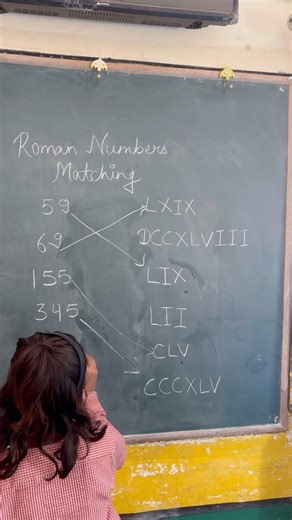 Roman Numbers
Matching
59 LXIX
69 DCCXLVIII
155 LIX
345 LII
CLV
CCCXLV